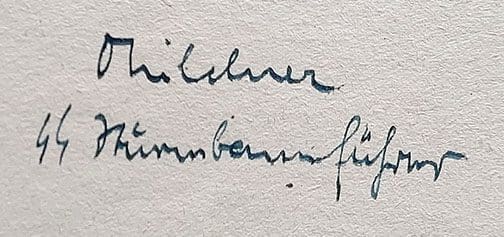 Mildner
SS Sturmbannführer